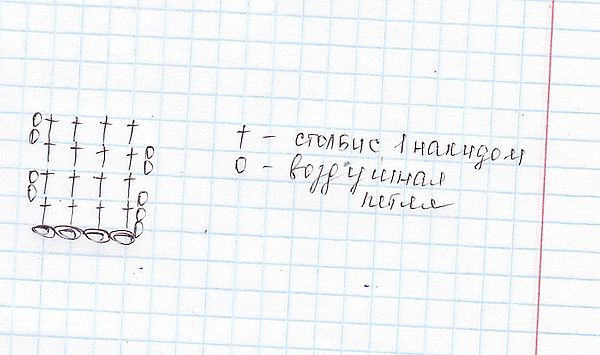 † - столб с 1 накидом
0 - воздушная
петля